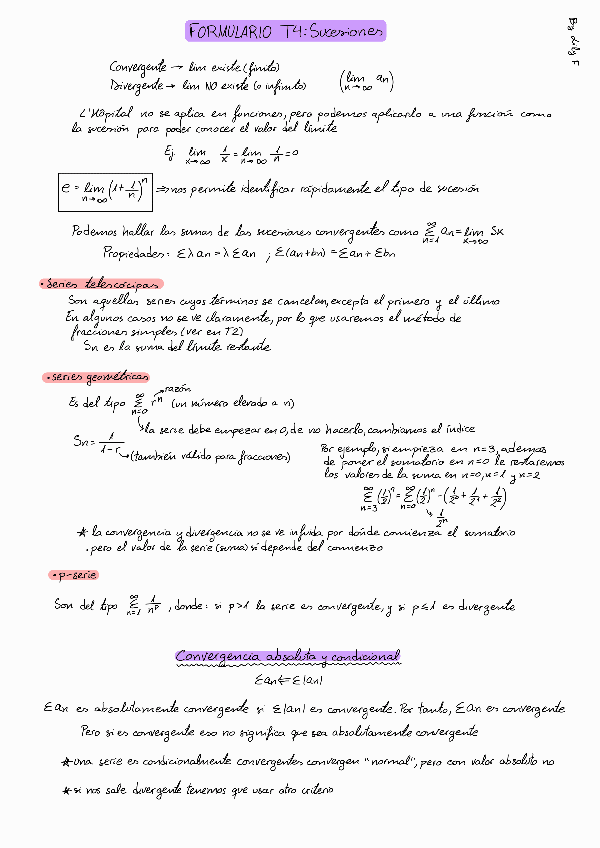 FORMULARIO T4: Sucesiones
By Lily F
Convergente → lim existe (finito)
Divergente → lim NO existe (o infinito) (lim n→∞ an)
L'Hôpital no se aplica en funciones, pero podemos aplicarlo a una función como
la sucesión para poder conocer el valor del límite
Ej. lim x→∞ 1/x = lim n→∞ 1/n = 0
e = lim n→∞ (1+1/n)^n ⇒ nos permite identificar rápidamente el tipo de sucesión
Podemos hallar las sumas de las sucesiones convergentes como ∞ Σ n=1 an = lim x→∞ Sk
Propiedades: Σλan = λΣan ; Σ(an+bn) = Σan + Σbn
• Series telescópicas
Son aquellas series cuyos términos se cancelan, excepto el primero y el último
En algunos casos no se ve claramente, por lo que usaremos el método de
fracciones simples (ver en T2)
Sn es la suma del límite restante
• series geométricas
Es del tipo ∞ Σ n=0 r^n → razón (un número elevado a n)
↳ la serie debe empezar en 0, de no hacerlo, cambiamos el índice
Sn = 1/1-r → (también válido para fracciones)
Por ejemplo, si empieza en n=3, además
de poner el sumatorio en n=0 le restaremos
los valores de la suma en n=0, n=1 y n=2
∞ Σ n=3 (1/2)^n = ∞ Σ n=0 (1/2)^n - (1/2^0 + 1/2^1 + 1/2^2)
↳ 1/2^n
* la convergencia y divergencia no se ve influida por dónde comienza el sumatorio
, pero el valor de la serie (suma) sí depende del comienzo
• p-serie
Son del tipo ∞ Σ n=1 1/n^p , donde: si p>1 la serie es convergente, y si p≤1 es divergente
Convergencia absoluta y condicional
Σan ⇐ Σ|an|
Σan es absolutamente convergente si Σ|an| es convergente. Por tanto, Σan es convergente
Pero si es convergente eso no significa que sea absolutamente convergente
* una serie es condicionalmente convergentes convergen "normal", pero con valor absoluto no
* si nos sale divergente tenemos que usar otro criterio